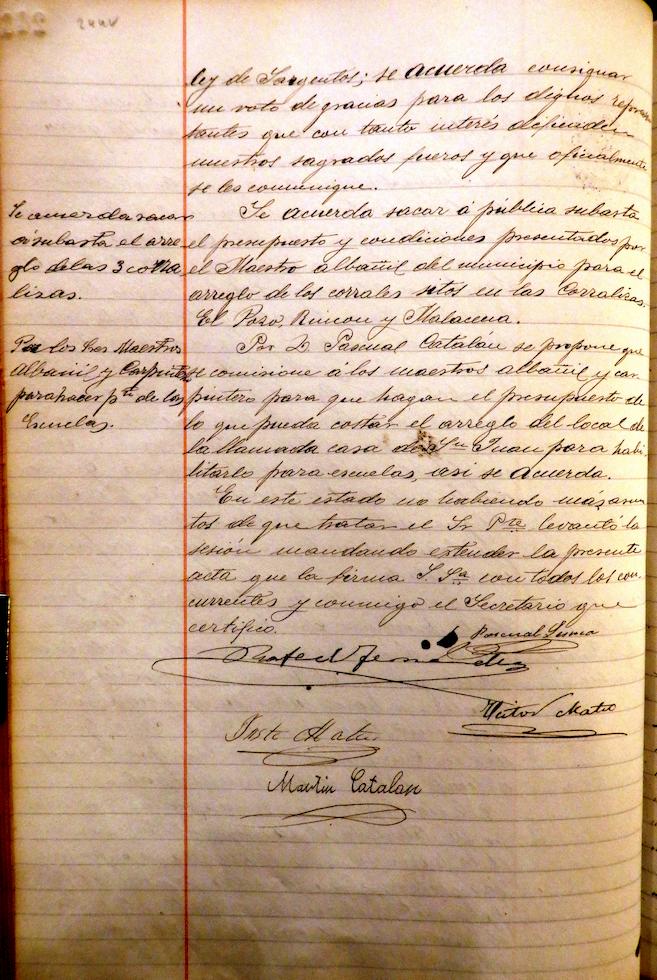 244v
ley de Sargentos; se acuerda consignar
un voto de gracias para los dignos represen
tantes que con tanto interés defienden
nuestros sagrados fueros y que oficialmente
se les comunique.
Se acuerda sacar
á subasta el arre
glo de las 3 corra
lizas.
Se acuerda sacar á pública subasta
el presupuesto y condiciones presentados por
el Maestro albañil del municipio para el
arreglo de los corrales sitos en las Corralizas
El Pozo, Rincon y Malacena.
los Maestros
albañil y Carpintero
para hacer pto de las
Escuelas.
Por D. Pascual Catalán se propone que
se comisione á los maestros albañil y car
pintero para que hagan el presupuesto de
lo que pueda costar el arreglo del local de
la llamada casa de Sn Juan para habi
litarlo para escuelas, asi se acuerda.
En este estado no habiendo más asun
tos de que tratar el Sr Pte levantó la
sesión mandando extender la presente
acta que la firma S. Sa con todos los con
currentes y conmigo el Secretario que
certifico.
Pascual
Rafael Fernandez
Victor Mateo
Martin Catalan